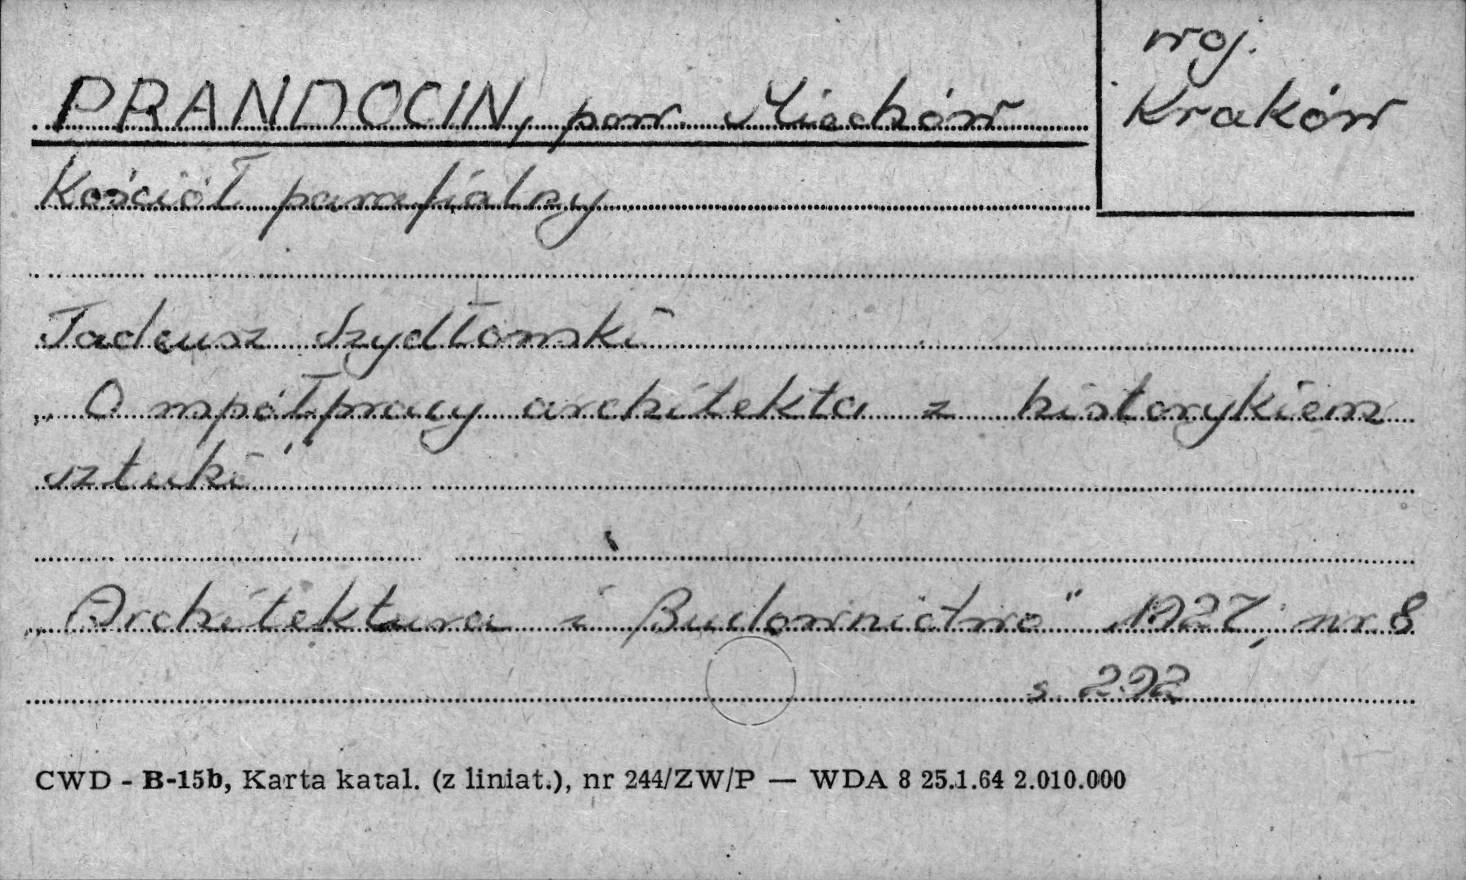 PRANDOCIN, pow. Miechów
woj.
Kraków
Kościół parafialny
Tadeusz Szydłowski
„O współpracy architekta z historykiem
sztuki"
„Architektura i Budownictwo" 1927, nr 8
s. 292
CWD - B-15b, Karta katal. (z liniat.), nr 244/ZW/P — WDA 8 25.1.64 2.010.000